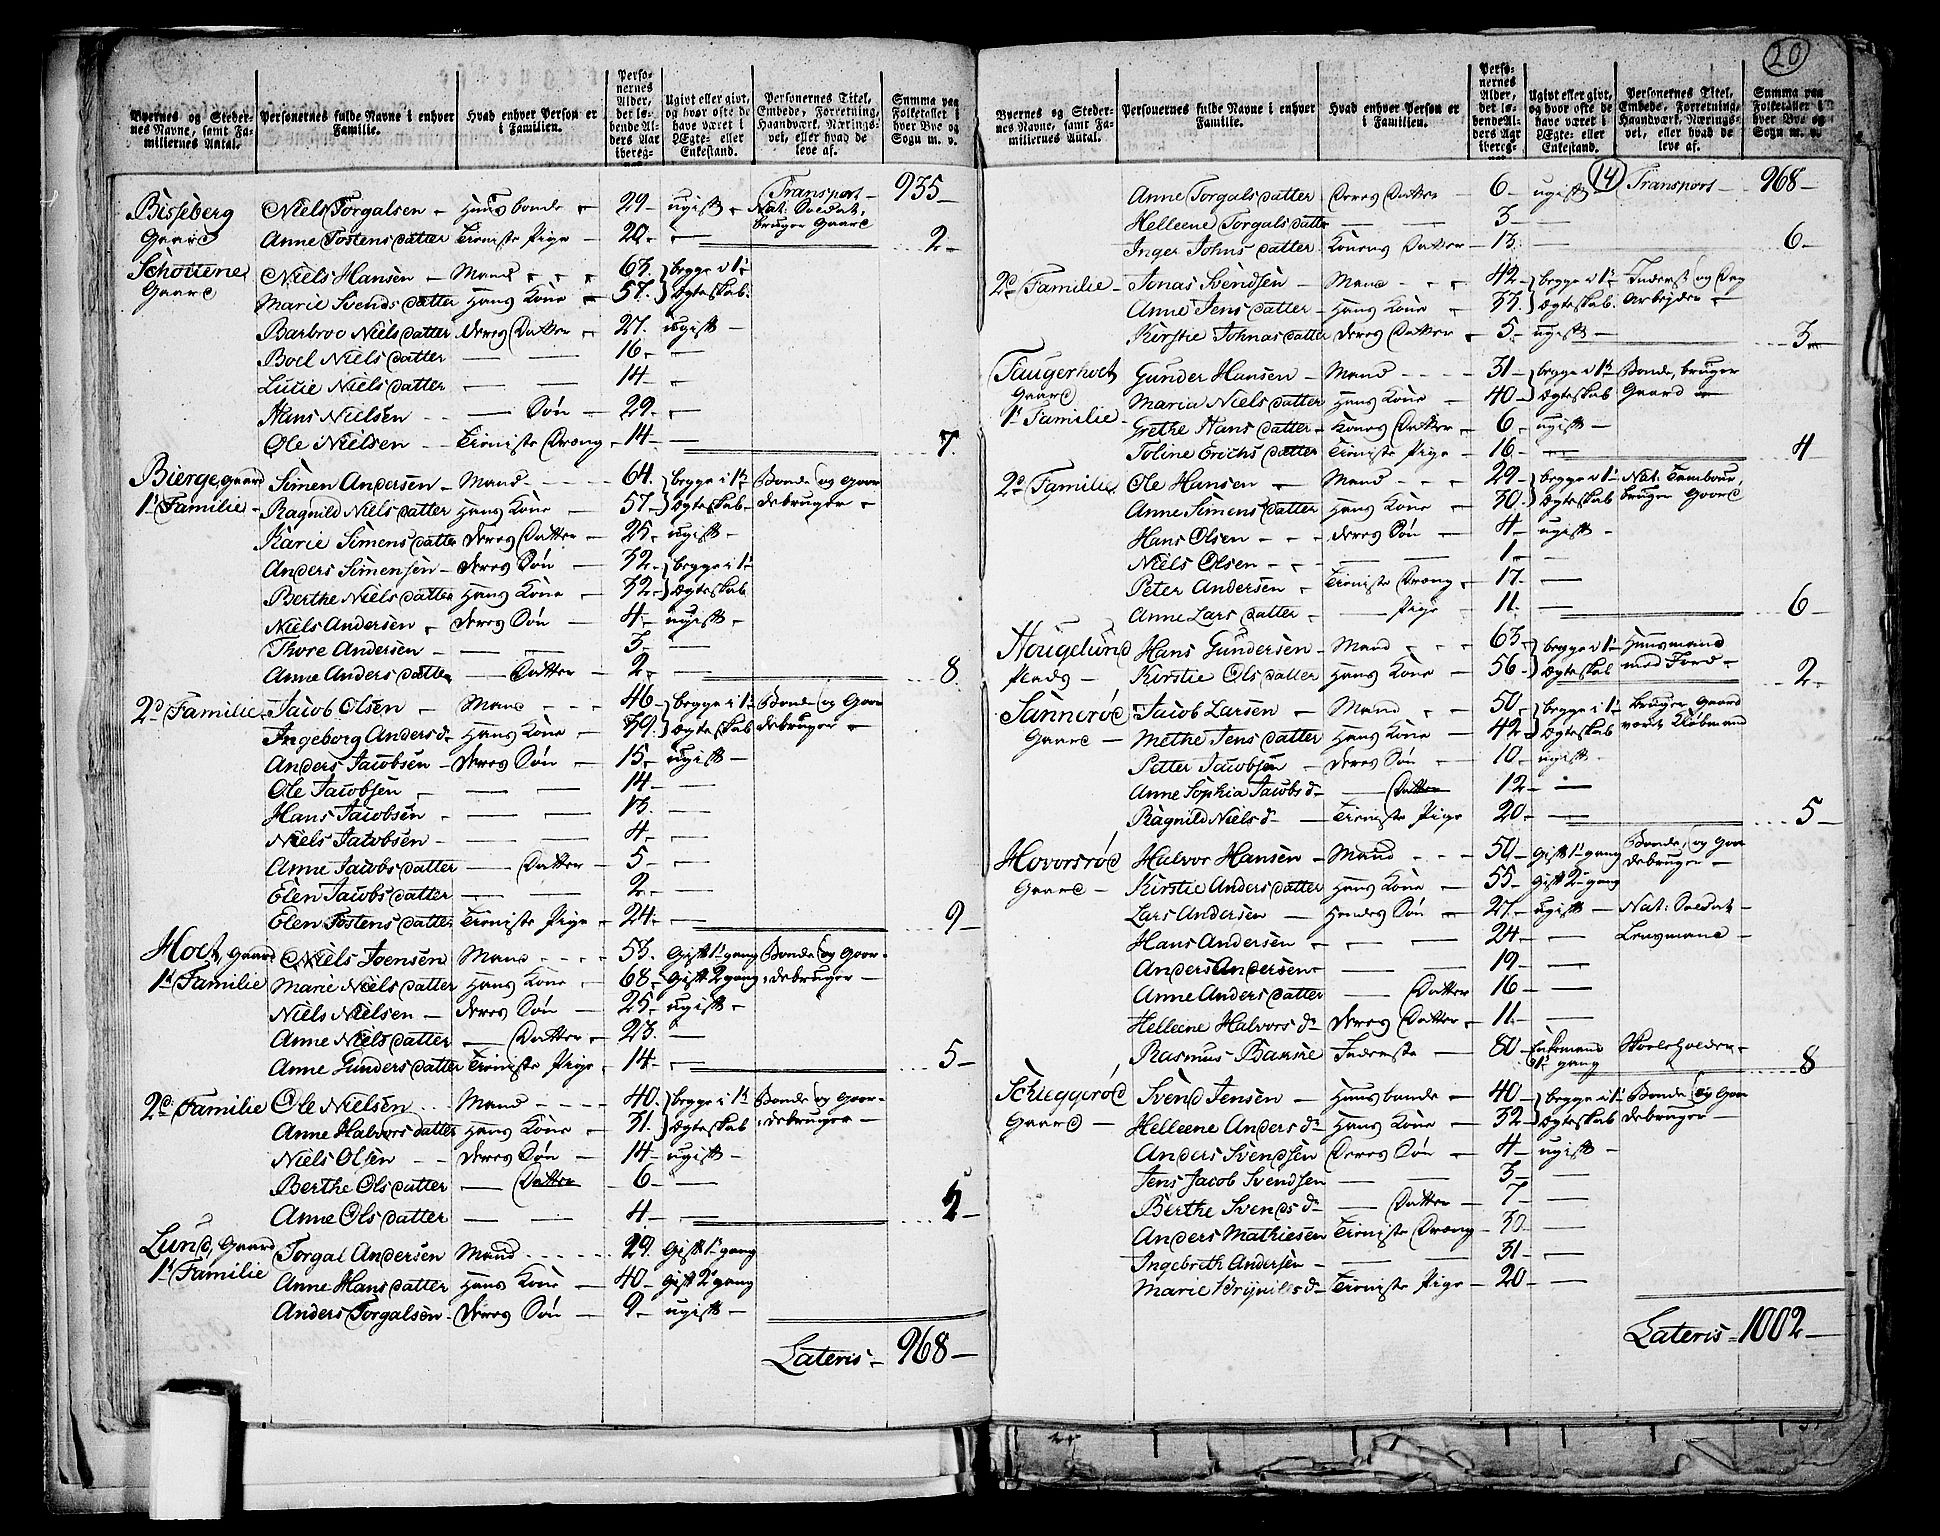 20
14
Byernes og Stedernes Navne, samt Familiernes Antal.
Personernes fulde Navne i enhver Familie.
Hvad enhver Person er i Familien.
Personernes Alder, det løbende Alders Aar iberegnet
Ugivt eller givt, og hvor ofte de have været i Ægte- eller Enkestand.
Personernes Titel, Embede, Forretning, Haandværk, Næringsvei, eller hvad de leve af.
Summa paa Folketallet i hver Bye og Sogn m. v.
Transport - 935 -
Bisseberg Gaard Niels Torgalsen - Huusbonde - 29 - ugift - Nat: Soldat, bruger Gaard
Anne Tostensdatter Tieniste Pige - 20 - — 2 -
Schottene Gaard Niels Hansen - Mand - - - 63. begge i 1te
Marie Svendsdatter Hans Kone - 57. Ægteskab.
Barbroe Nielsdatter Deres Datter - 27. ugift -
Boel Nielsdatter — — 16 - —
Lucie Nielsdatter — — 14 - —
Hans Nielsen - - — Søn - 29 - —
Ole Nielsen - - Tieniste Dreng - 14 - — 7.
Bierge, gaard Simen Andersen - Mand - - - - 64. begge i 1te Bonde og Gaar-
1te Familie - Ragnild Nielsdatter Hans Kone - 57 - Ægteskab - debruger -
Karie Simensdatter Deres Datter - 25 - ugift -
Anders Simensen - Deres Søn - 32 - begge i 1te
Berthe Nielsdatter Hans Kone - 32 - Ægteskab
Niels Andersen - Deres Søn - 4 - ugift -
Thore Andersen - — — 3 - —
Anne Andersdatter — Datter - 2 - — 8.
2d Familie - Jacob Olsen - Mand - - - 46 - begge i 1te Bonde og Gaar
Ingeborg Andersd - Hans Kone - 39. Ægteskab debruger -
Anders Jacobsen - Deres Søn - 15 - ugift -
Ole Jacobsen - — — 14 - —
Hans Jacobsen - — — 13. —
Niels Jacobsen - — — 4 - —
Anne Jacobsdatter — Datter - 5 - —
Elen Jacobsdatter — — 2 - —
Elen Tostensdatter Tieniste Pige - 24 - — 9 -
Hoet, Gaard Niels Joensen Mand - - - - 53. Gift 1te gang Bonde og Gaar-
1te Familie Marie Nielsdatter Hans Kone - 68 - Gift 2 gang - debruger -
Niels Nielsen - Deres Søn - 25 - ugift -
Anne Nielsdatter — Datter - 23. —
Anne Gundersdatter Tieniste Pige - 14 - — 5 -
2d Familie Ole Nielsen - - Mand - - - - 40. begge i 1te Bonde og Gaar-
Anne Halvorsdatter Hans Kone - 31. Ægteskab - debruger -
Niels Olsen - - Deres Søn - 14 - ugift -
Berthe Olsdatter — Datter 6 - —
Anne Olsdatter — — 4 - — 5 -
Lund, Gaard Torgal Andersen Mand - - - - - 29. Gift 1te gang
1te Familie Anne Hansdatter Hans Kone - 40 - Gift 2 gang
Anders Torgalsen - Deres Søn - 9 - ugift -
Lateris - 968 -
Byernes og Stedernes Navne, samt Familiernes Antal.
Personernes fulde Navne i enhver Familie.
Hvad enhver Person er i Familien.
Personernes Alder, det løbende Alders Aar iberegnet
Ugivt eller givt, og hvor ofte de have været i Ægte- eller Enkestand.
Personernes Titel, Embede, Forretning, Haandværk, Næringsvei, eller hvad de leve af.
Summa paa Folketallet i hver Bye og Sogn m. v.
Anne Torgalsdatter Deres Datter - 6 - ugift Transport - 968 -
Helleene Torgalsdatter — — 3 - —
Inger Johnsdatter Konens Datter - 13. — 6 -
2d Familie - Jonas Svendsen - Mand - - - 42 - begge i 1te Inderst og Dag
Anne Jensdatter - Hans Kone - 33. Ægteskab Arbejder -
Kirstie Johnasdatter Deres Datter - 5 - ugift - 3 -
Taugerholt Gaard Gunder Hansen - Mand - - - - 31 - begge i 1te Bonde, bruger
1te Familie - Maria Nielsdatter Hans Kone - 40 - Ægteskab Gaard -
Grethe Hansdatter - Kones Datter - 6 - ugift -
Toline Erichsdatter Tieniste Pige - 16 - — 4
2d Familie Ole Hansen - Mand - - - 29 - begge i 1te Nat. Tambour,
Anne Simensdatter Hans Kone - 30. Ægteskab bruger Gaard
Hans Olsen - - - Deres Søn - 4 - ugift -
Niels Olsen - - - — 1 - —
Peter Andersen - Tieniste Dreng - 17 - —
Anne Larsdatter - — Pige - 11. — 6 -
Hougelund Hans Gundersen - Mand - - - 63 - begge i 1te Huusmand
Plads - Kirstie Olsdatter Hans Kone - 56 - Ægteskab med Jord - 2 -
Sannerød Jacob Larsen - Mand - - - 50 - begge i 1te bruger Gaard
Gaard - Methe Jensdatter Hans Kone - 42 - Ægteskab
Petter Jacobsen - Deres Søn - 10 - ugift -
Anne Sophia Jacobsd - — Datter 12 - —
Ragnild Nielsd - — Tieniste Pige 20 - — 5 -
Hovorsrød Halvor Hansen - Mand - - - 50 - Gift 1te gang Bonde, og Gaar
Gaard - Kirstie Andersdatter Hans Kone - 55 - Gift 2 gang debruger -
Lars Andersen — Hendes Søn - 27 - ugift - Nat: Soldat -
Hans Andersen - — — 24 - — Lensmand -
Anders Andersen - — — 19 - —
Anne Andersdatter — Datter 16 - —
Helleene Halvorsd - Deres Datter - 11 - —
Rasmus Inderste — 80 - Enkemand 1te gang Skoleholder - 8
Schieggerød Svend Jensen - Huusbonde - 40 - begge i 1te Bonde og Gaar
Gaard - Helleene Andersd - Hans Kone - 32 - Ægteskab debruger -
Anders Svendsen Deres Søn - 4 - ugift -
Jens Jacob Svendsen — — 3 - —
Berthe Svendsd - — Datter - 7 - —
Anders Mathiesen Tieniste Dreng - 30 - —
Ingebreth Andersen - — — 31 - —
Marie Tieniste Pige - 20 - —
Lateris - 1002 -